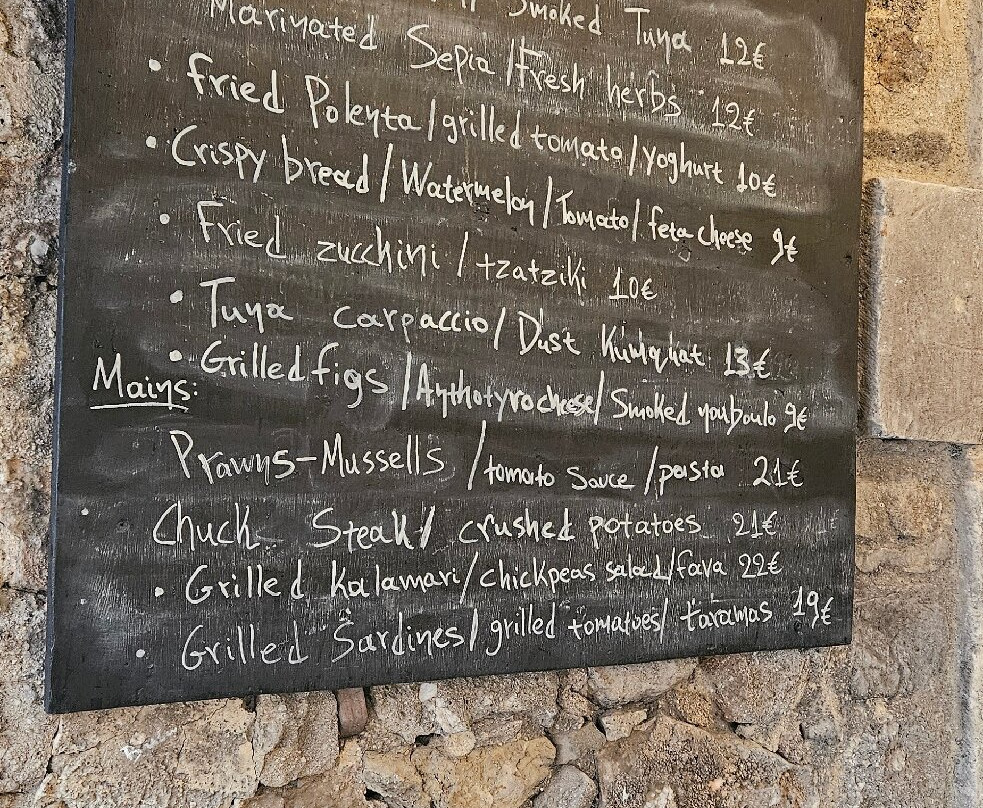 Smoked Tuna 12€
Marinated Sepia / Fresh herbs 12€
• Fried Polenta / grilled tomato / Yoghurt 10€
• Crispy bread / Watermelon / Tomato / feta cheese 9€
• Fried zucchini / tzatziki 10€
• Tuna carpaccio / Dust Kumquat 13€
• Grilled figs / Anthotyro cheese / Smoked nouboulo 9€
Mains:
Prawns-Mussells / tomato sauce / pasta 21€
• Chuck Steak / crushed potatoes 21€
• Grilled Kalamari / chickpeas salad / fava 22€
• Grilled Sardines / grilled tomatoes / taramas 19€